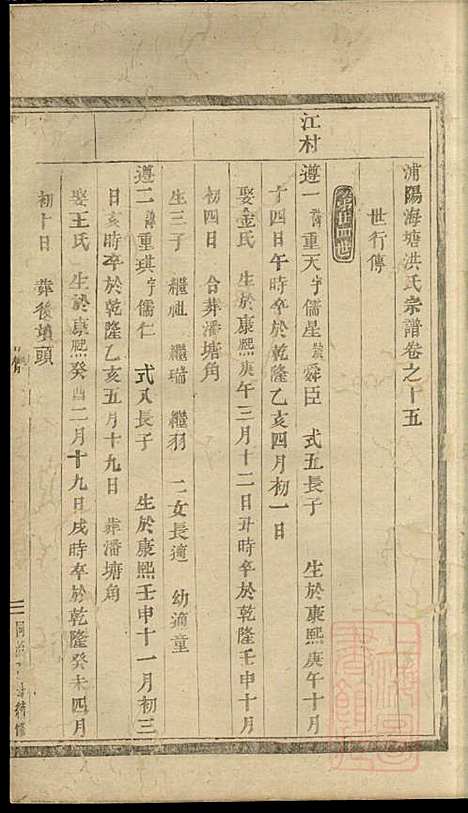 浦陽海塘洪氏宗譜卷之十五
世行傳
第廿四世
江村
遵一諱重天字儒星號舜臣 式五長子 生於康熙庚午十月
十四日午時卒於乾隆乙亥四月初一日
娶金氏 生於康熙庚午三月十二日丑時卒於乾隆壬申十月
初四日 合葬潘塘角
生三子 繼祖 繼瑞 繼羽 二女長適 幼適童
遵二諱重琪字儒仁 式又長子 生於康熙壬申十一月初三
日亥時卒於乾隆乙亥五月十九日 葬潘塘角
娶王氏 生於康熙癸酉二月十九日戌時卒於乾隆癸未四月
初十日 葬後墳頭